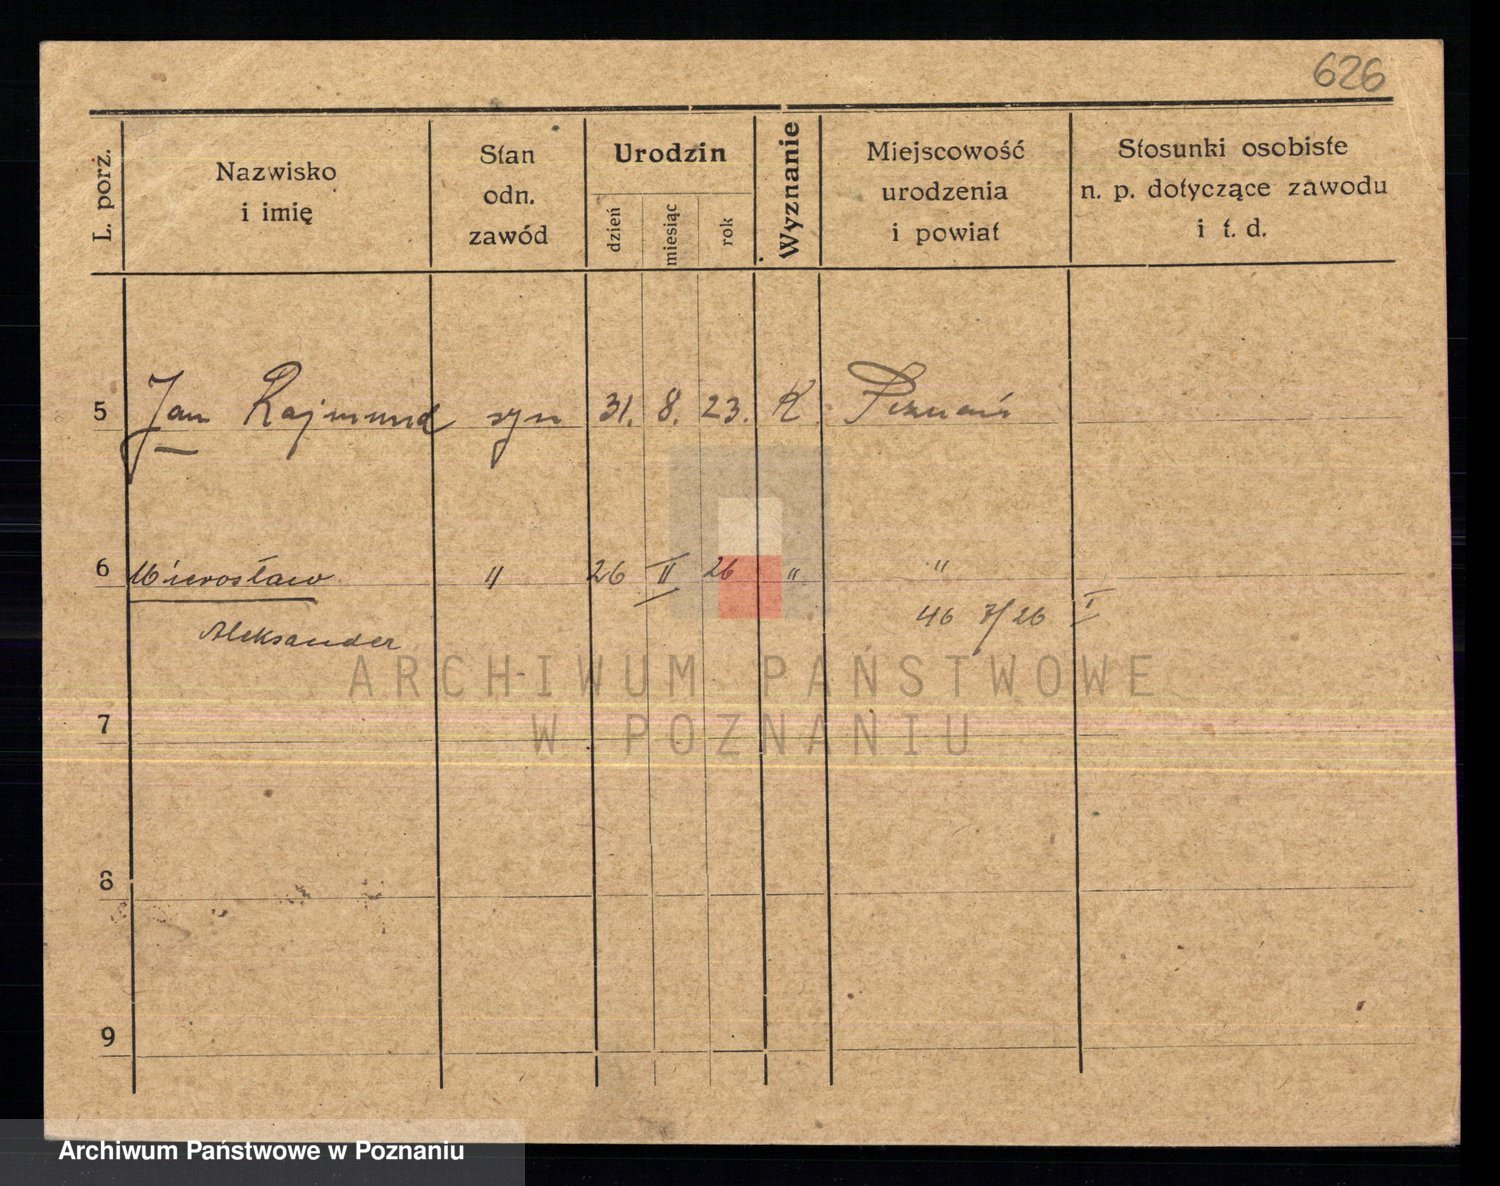 626
L. porz.
Nazwisko
i imię
Stan
odn.
zawód
Urodzin
dzień
miesiąc
rok
Wyznanie
Miejscowość
urodzenia
i powiat
Stosunki osobiste
n. p. dotyczące zawodu
i t. d.
5 Jan Rajmund syn 31. 8. 23. K. Poznań
6 Mirosław " 26 II 26 " "
46 3/26 I
Aleksander
ARCHIWUM PAŃSTWOWE
W POZNANIU
7
8
9
Archiwum Państwowe w Poznaniu